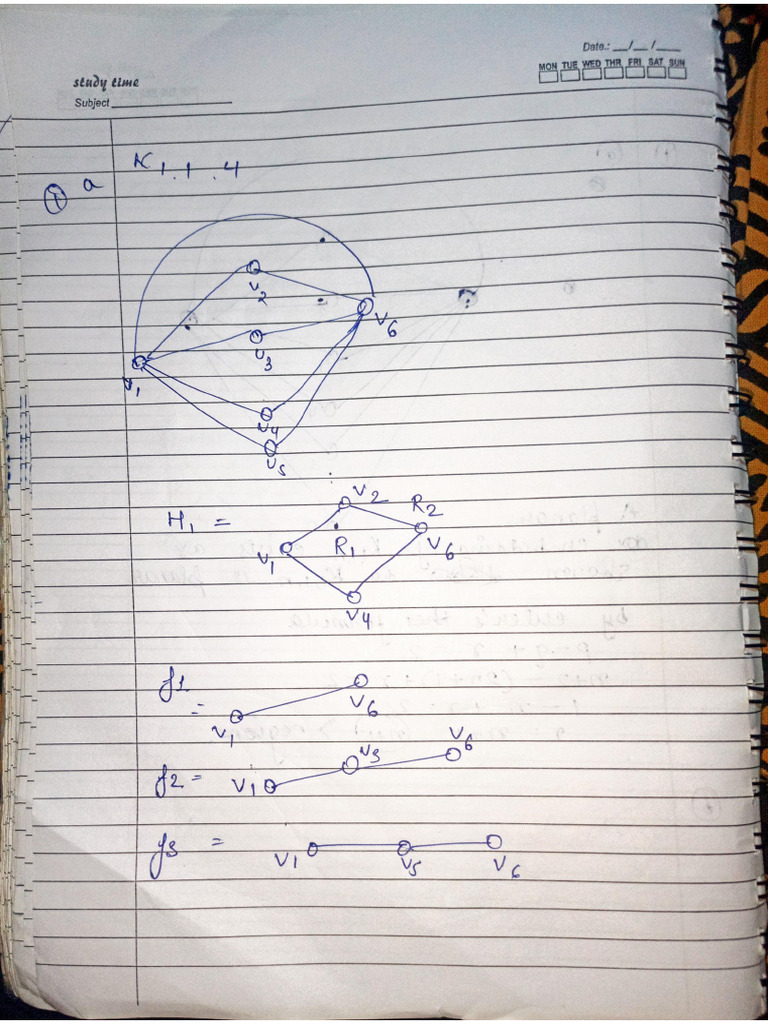 Date.: __/__/____
MON TUE WED THR FRI SAT SUN
study time
Subject
① a K1.1.4
v2
v6
v3
v1
v4
v5
H1 =
v2 R2
v1 R1 v6
v4
f1 =
v1 v6
f2 = v1 v3 v6
f3 = v1 v5 v6